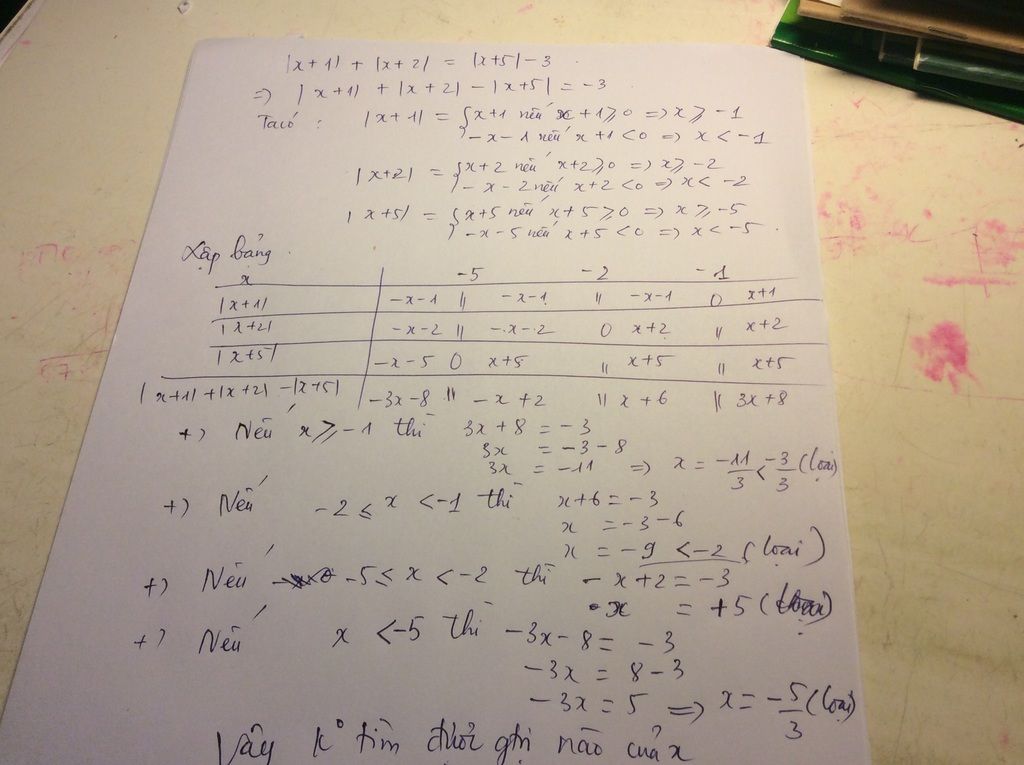 |x+1| + |x+2| = |x+5| - 3
=> |x+1| + |x+2| - |x+5| = -3
Ta có : |x+1| = { x+1 nếu x+1 ⩾ 0 => x ⩾ -1
-x-1 nếu x+1 < 0 => x < -1
|x+2| = { x+2 nếu x+2 ⩾ 0 => x ⩾ -2
-x-2 nếu x+2 < 0 => x < -2
|x+5| = { x+5 nếu x+5 ⩾ 0 => x ⩾ -5
-x-5 nếu x+5 < 0 => x < -5.
Lập bảng.
x -5 -2 -1
|x+1| -x-1 || -x-1 || -x-1 0 x+1
|x+2| -x-2 || -x-2 0 x+2 || x+2
|x+5| -x-5 0 x+5 || x+5 || x+5
|x+1| + |x+2| - |x+5| -3x-8 || -x+2 || x+6 || 3x+8
+) Nếu x ⩾ -1 thì 3x+8 = -3
3x = -3-8
3x = -11 => x = -11/3 < -3/3 (loại)
+) Nếu -2 ⩽ x < -1 thì x+6 = -3
x = -3-6
x = -9 < -2 (loại)
+) Nếu -5 ⩽ x < -2 thì -x+2 = -3
x = +5 (loại)
+) Nếu x < -5 thì -3x-8 = -3
-3x = 8-3
-3x = 5 => x = -5/3 (loại)
Vậy k° tìm được gtrị nào của x